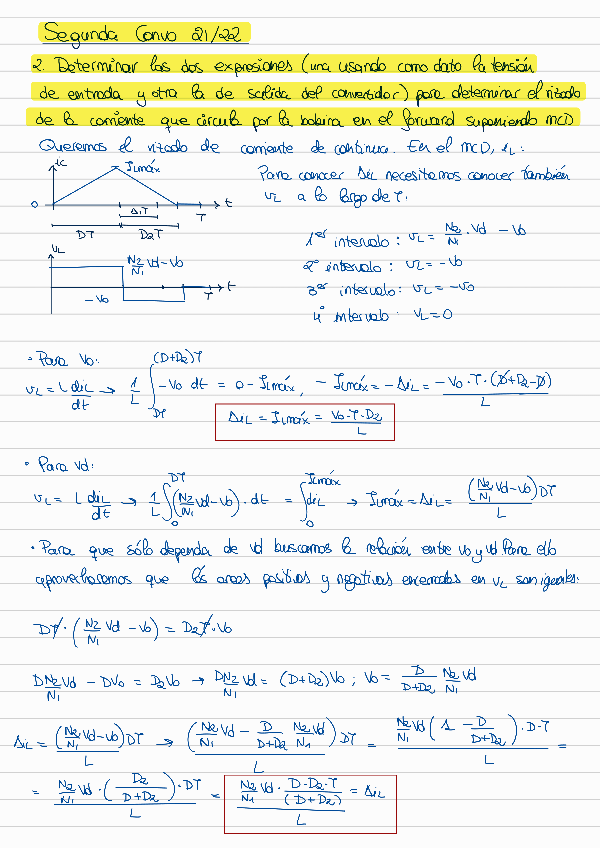 Segunda Convo 21/22
2. Determinar las dos expresiones (una usando como dato la tensión
de entrada y otra la de salida del convertidor) para determinar el rizado
de la corriente que circula por la bobina en el forward suponiendo MCD
Queremos el rizado de corriente de continua. En el MCD, iL:
iL
ILmáx
Para conocer ΔiL necesitamos conocer también
vL a lo largo de T.
0
Δ1T
T
t
DT
D2T
1er intervalo: vL = N2/N1 · Vd - Vo
2º intervalo: vL = -Vo
3er intervalo: vL = -Vo
4º intervalo: vL = 0
vL
N2/N1 Vd - Vo
-Vo
T
t
• Para Vo:
vL = L diL/dt → 1/L ∫DT^(D+D2)T -Vo dt = 0 - ILmáx, -ILmáx = -ΔiL = -Vo·T·(D+D2-D)/L
ΔiL = ILmáx = Vo·T·D2/L
• Para Vd:
vL = L diL/dt → 1/L ∫0^DT (N2/N1 Vd - Vo)·dt = ∫0^ILmáx diL → ILmáx = ΔiL = (N2/N1 Vd - Vo)DT/L
• Para que sólo dependa de Vd buscamos la relación entre Vo y Vd. Para ello
aprovecharemos que las areas positivas y negativas encerradas en vL son iguales:
DT·(N2/N1 Vd - Vo) = D2T·Vo
DN2/N1 Vd - DVo = D2Vo → DN2/N1 Vd = (D+D2)Vo ; Vo = D/(D+D2) N2/N1 Vd
ΔiL = (N2/N1 Vd - Vo)DT/L → (N2/N1 Vd - D/(D+D2) N2/N1 Vd)DT/L = N2/N1 Vd(1 - D/(D+D2))·D·T/L =
= N2/N1 Vd·(D2/(D+D2))·DT/L = N2/N1 Vd· D·D2·T/(D+D2) /L = ΔiL